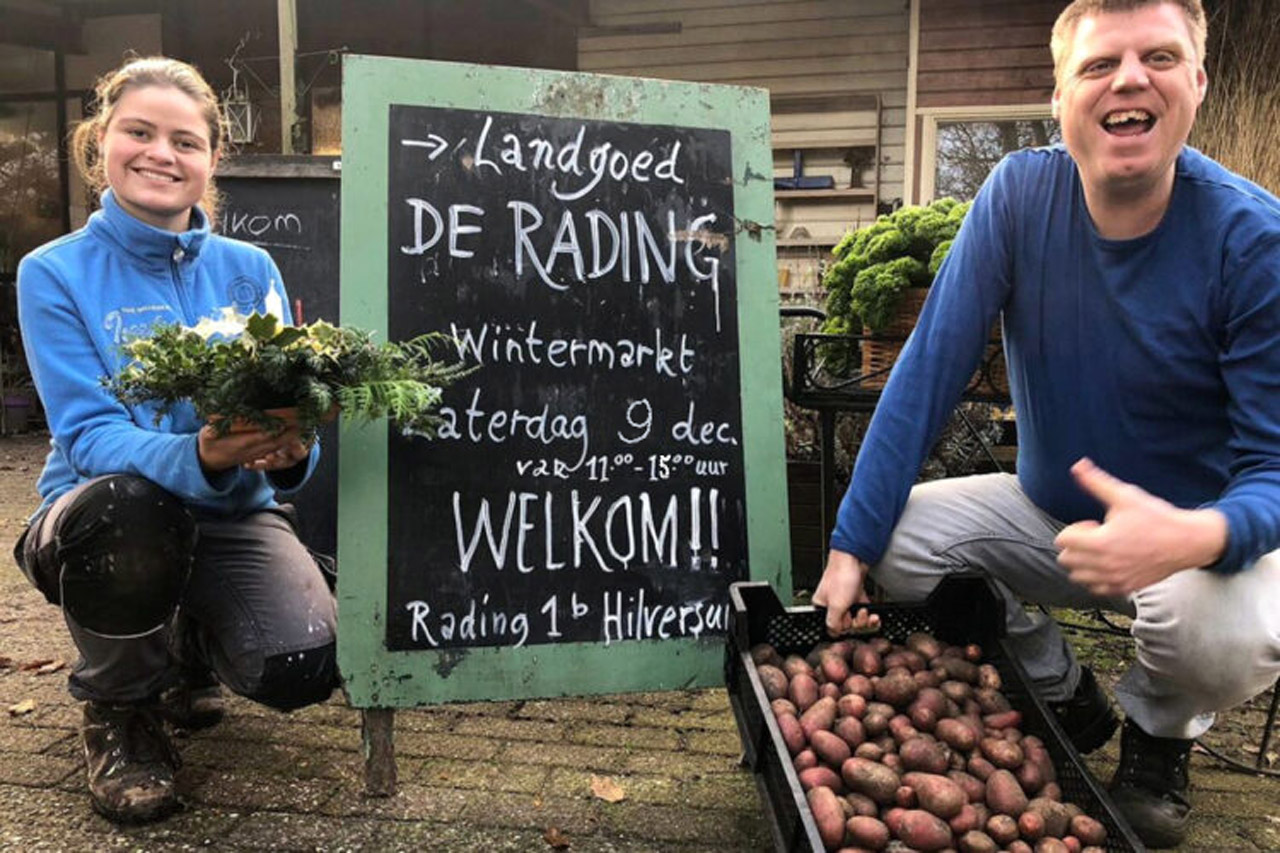 → Landgoed
DE RADING
Wintermarkt
Zaterdag 9 dec.
van 11.⁰⁰-15.⁰⁰ uur
WELKOM!!
Rading 1ᵇ Hilversu
lkom